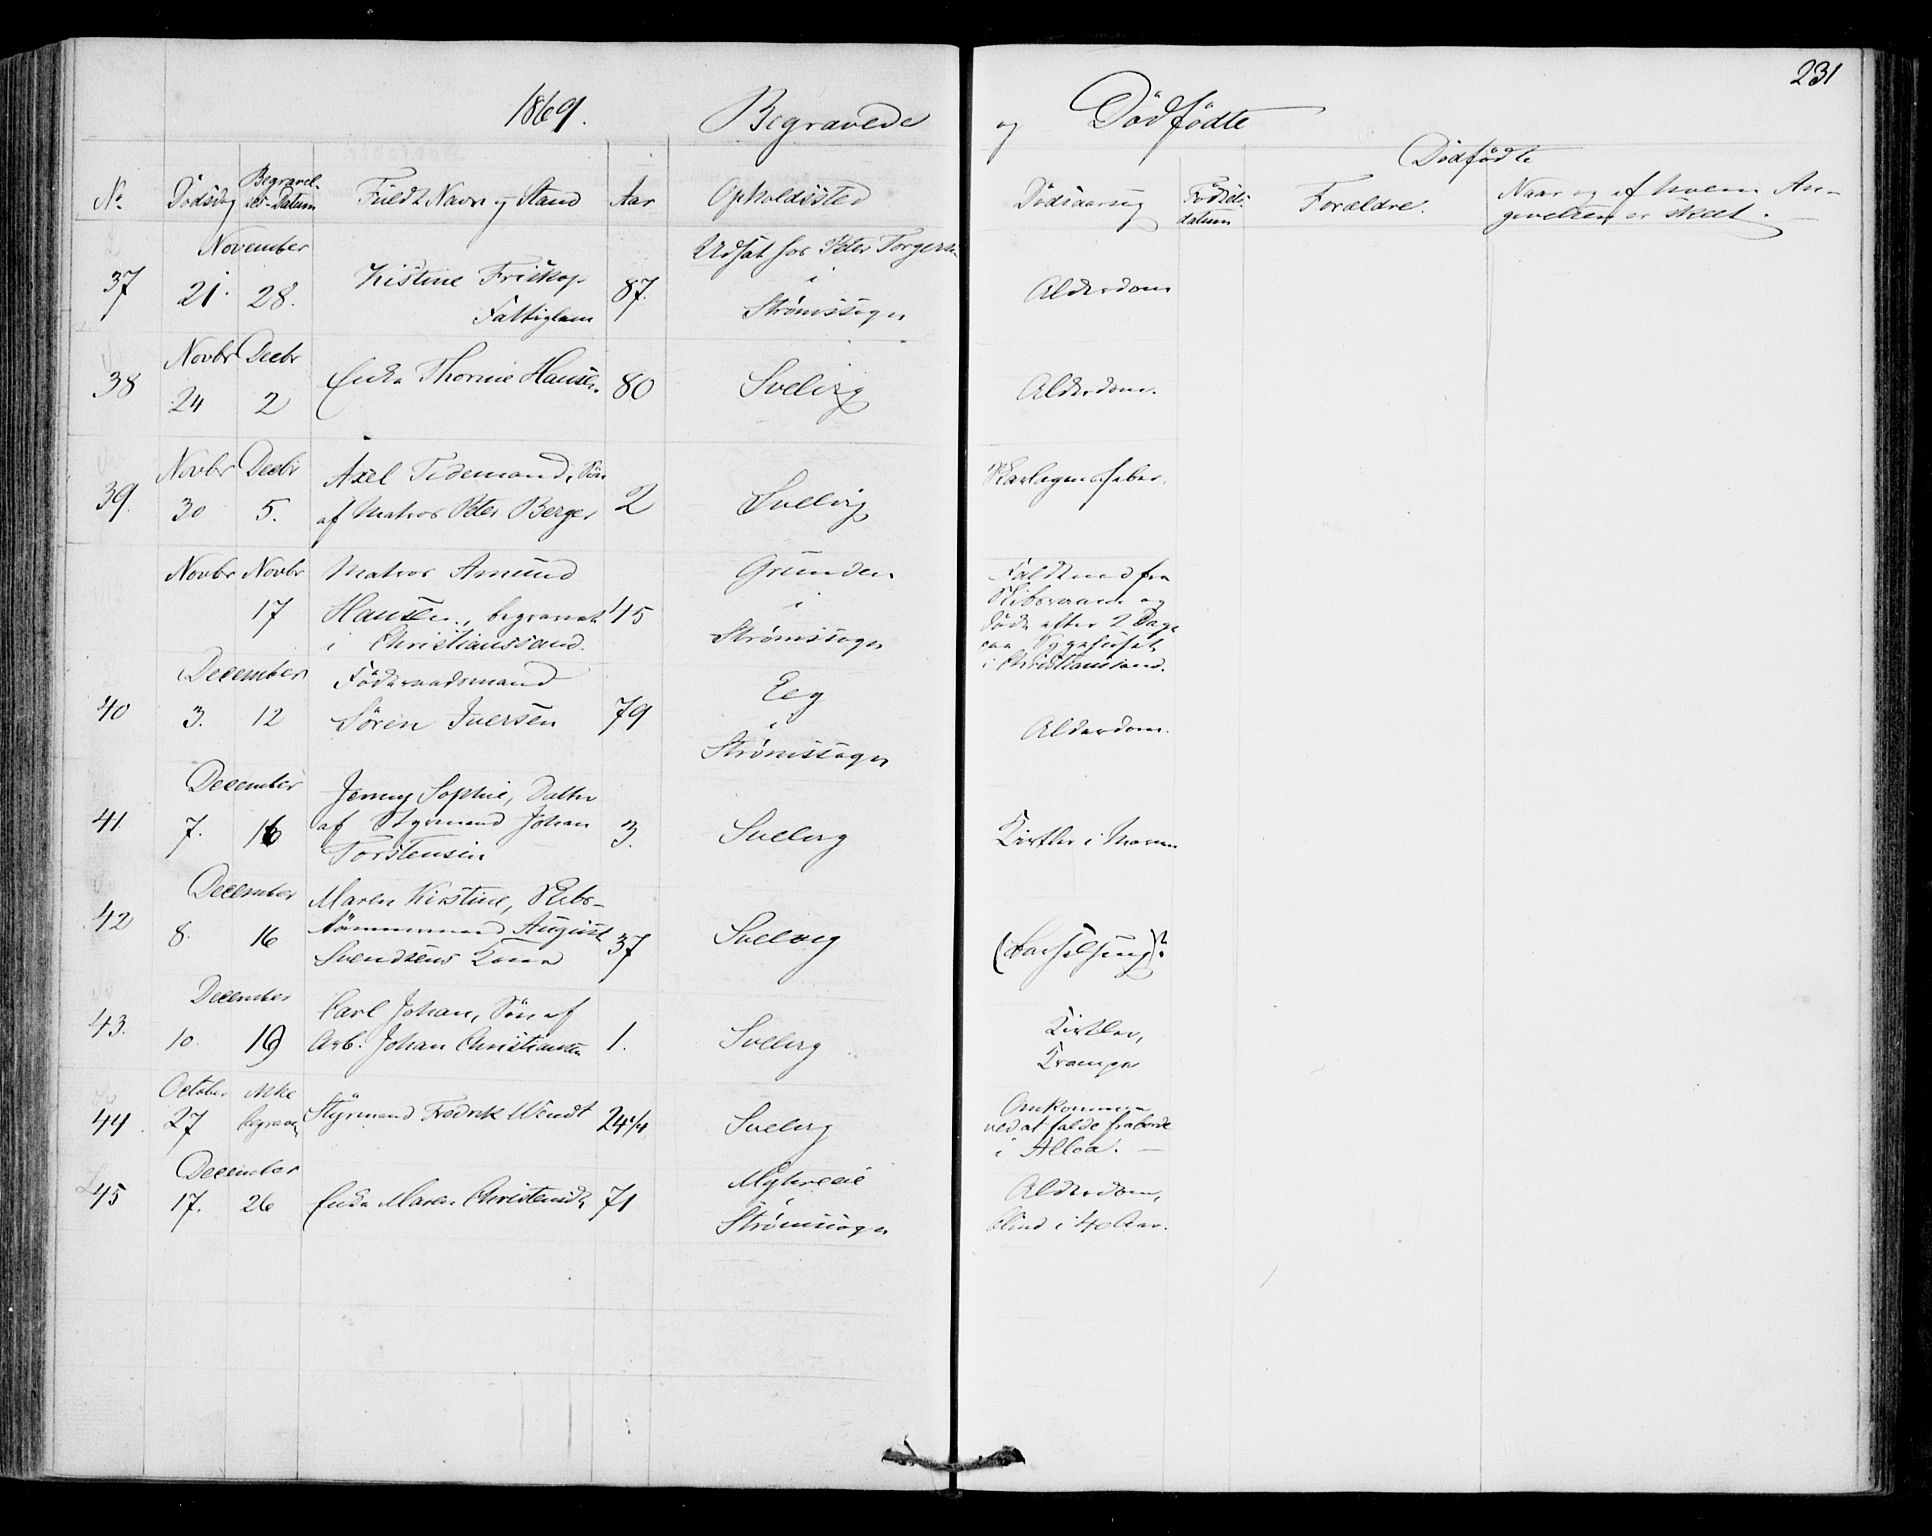 231
1869. Begravede og Dødfødte
Dødfødte
No. Dødsdag Begravel-
ses-Datum Fuldt Navn og Stand Aar Opholdssted Dødsaarsag Fødsels-
datum Forældre. Naar og af hvem An-
givelsen er skeet.
November
37 21. 28. Kistine Friskop
Fattiglem 87. Udsat hos Peter Torgersen
i
Strømssogn Alderdom
Novbr Decbr
38 24 2 Enke Thorine Hansen. 80 Svelvig Alderdom.
Novbr Decbr
39. 30 5. Axel Tidemand, Søn
af Matros Peter Berger 2 Svelvig Skarlagensfeber.
Novbr Novbr
17 Matros Amund
Hansen, begravet
i Christianssand. 45 Grunden
i
Strømssogn Faldt ned fra
Skibsraaen og
døde efter 2 Dage
paa Sygehuset
i Christiansand.
December
40 3. 12 Føderaadsmand
Søren Iversen 79 Eeg
i
Strømssogn Alderdom.
December
41. 7. 16 Jenny Sophie, Datter
af Styrmand Johan
Torstensen 3. Svelvig Kirtler i Maven
December
42 8. 16 Maren Kirstine, Skibs-
tømmermand August
Svendsens Kone 37 Svelvig (Barselseng)?
December
43. 10. 19 Carl Johan, Søn af
Arb. Johan Christiansen 1. Svelvig Kirtler,
Krampe
October Ikke
44. 27 begraven Styrmand Fredrik Wendt 24 1/4 Svelvig Omkommen
ved at falde fra borde
i Alloa.
December
45 17. 26 Enke Maren Christensdr 71 Myhreeie
i
Strømssogn Alderdom,
blind i 40 Aar.